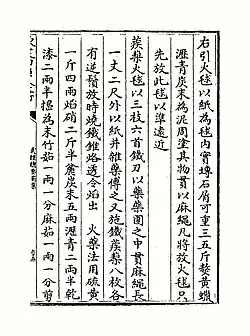 右引火毬以紙為毬內實塼石屑可重三五斤熬黃蠟
瀝青炭末為泥周塗其物貫以麻繩凡將放火毬只
先放此毬以準遠近
蒺藜火毬以三枝六首鐵刃以藥藥團之中貫麻繩長
一丈二尺外以紙并雜藥傅之又施鐵蒺藜八枚各
有逆鬚放時燒鐵錐烙透令焰出 火藥法用硫黃
一斤四兩焰硝二斤半麄炭末五兩瀝青二兩半乾
漆二兩半搗為末竹茹一兩一分麻茹一兩一分剪
武經總要前集